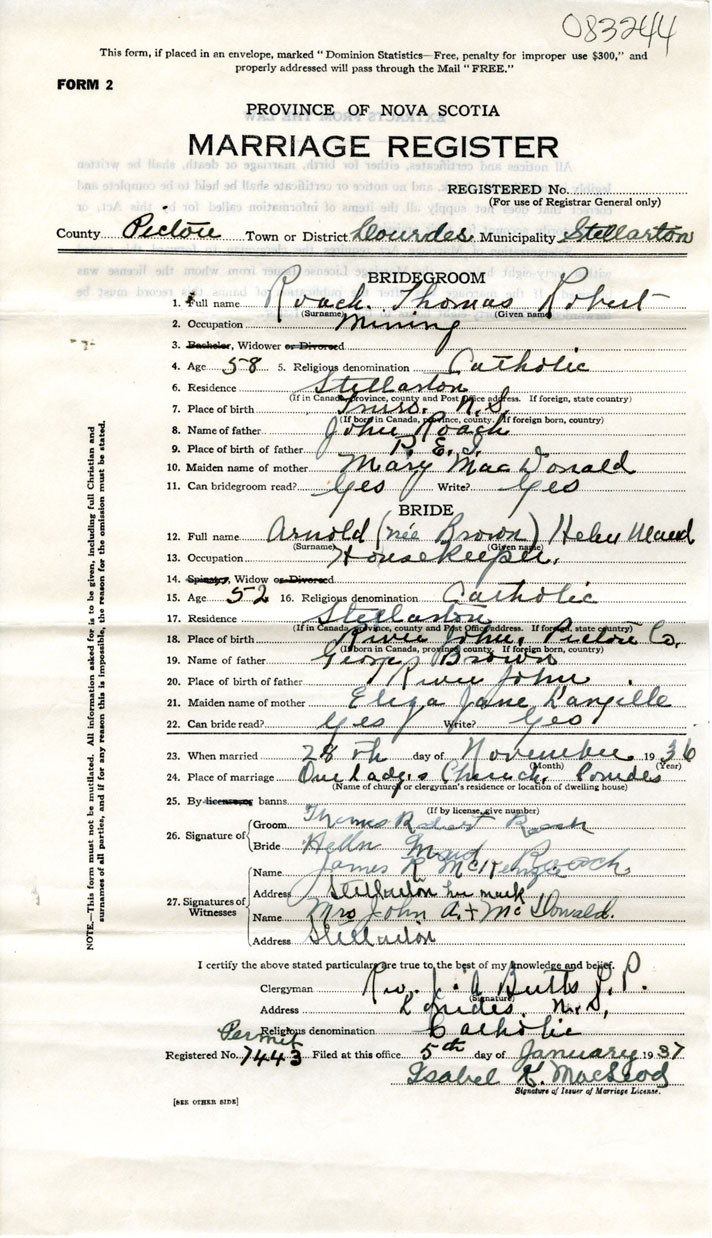 083244
This form, if placed in an envelope, marked "Dominion Statistics—Free, penalty for improper use $300," and
properly addressed will pass through the Mail "FREE."
FORM 2
PROVINCE OF NOVA SCOTIA
MARRIAGE REGISTER
REGISTERED No.
(For use of Registrar General only)
County Pictou Town or District Lourdes Municipality Stellarton
BRIDEGROOM
1. Full name Roach, Thomas Robert
(Surname) (Given name)
2. Occupation Mining
3. Bachelor, Widower or Divorced
4. Age 58 5. Religious denomination Catholic
6. Residence Stellarton
(If in Canada, province, county and Post Office address. If foreign, state country)
7. Place of birth Truro, N.S.
(If born in Canada, province, county. If foreign born, country)
8. Name of father John Roach
9. Place of birth of father P. E. I.
10. Maiden name of mother Mary MacDonald
11. Can bridegroom read? Yes Write? Yes
BRIDE
12. Full name Arnold (née Brown) Helen Maud
(Surname) (Given name)
13. Occupation Housekeeper.
14. Spinster, Widow or Divorced
15. Age 52 16. Religious denomination Catholic
17. Residence Stellarton
(If in Canada, province, county and Post Office address. If foreign, state country)
18. Place of birth River John, Pictou Co.
(If born in Canada, province, county. If foreign born, country)
19. Name of father George Brown
20. Place of birth of father River John
21. Maiden name of mother Eliza Jane Langille
22. Can bride read? Yes Write? Yes
23. When married 28th day of November 1936
(Month) (Year)
24. Place of marriage Our Lady's Church, Lourdes
(Name of church or clergyman's residence or location of dwelling house)
25. By license or banns
(If by license, give number)
26. Signature of Groom Thomas Robert Roach
Bride Hellen Maud Roach
27. Signatures of Witnesses Name James R McKenzie
Address Stellarton her mark
Name Mrs John A. + McDonald.
Address Stellarton
I certify the above stated particulars are true to the best of my knowledge and belief.
Clergyman Rev. J. A. Butts P. P.
(Signature)
Address Lourdes. N.S.
Religious denomination Catholic
Permit
Registered No. 7443 Filed at this office 5th day of January 1937
Isabel K. MacLeod
Signature of Issuer of Marriage License.
[SEE OTHER SIDE]
NOTE.—This form must not be mutilated. All information asked for is to be given, including full Christian and
surnames of all parties, and if for any reason this is impossible, the reason for the omission must be stated.